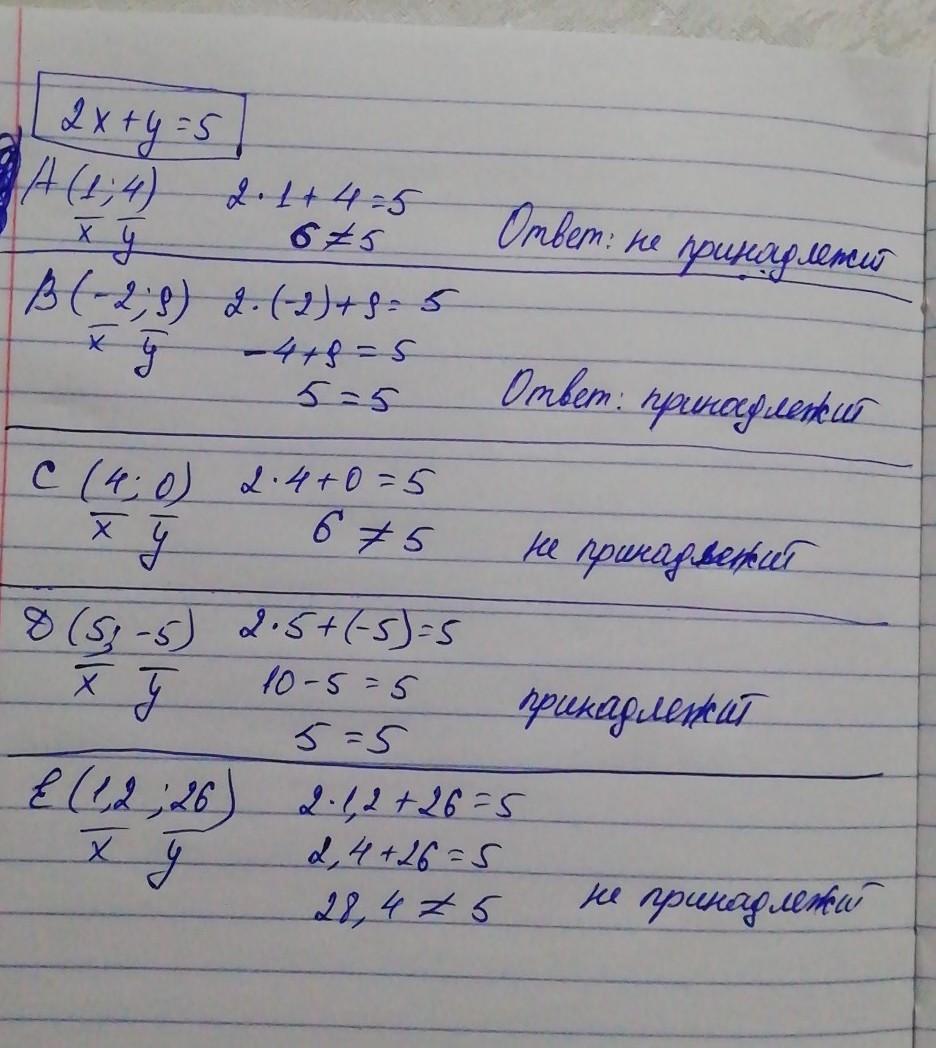 2x+y=5
A (1; 4) 2·1+4=5
x y 6≠5 Ответ: не принадлежит
B (-2; 9) 2·(-2)+9=5
x y -4+9=5
5=5 Ответ: принадлежит
C (4; 0) 2·4+0=5
x y 6≠5 не принадлежит
D (5; -5) 2·5+(-5)=5
x y 10-5=5 принадлежит
5=5
E (1,2; 26) 2·1,2+26=5
x y 2,4+26=5
28,4≠5 не принадлежит